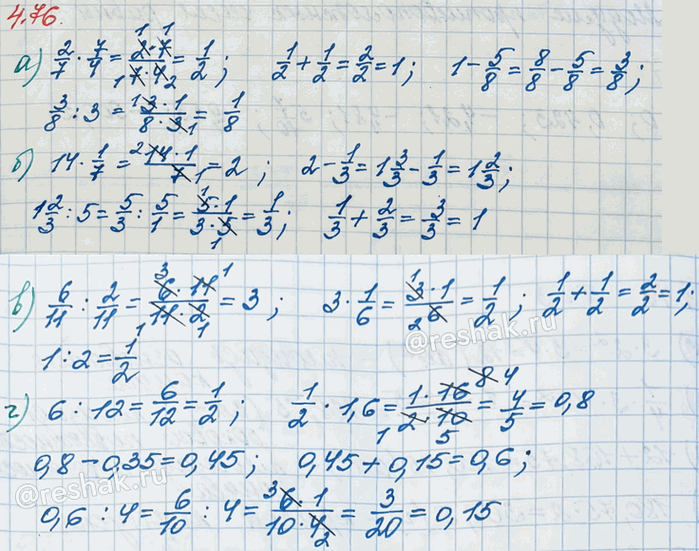 4.76.
а) 2/7 · 7/4 = 2·7/7·4 = 1/2; 1/2 + 1/2 = 2/2 = 1; 1 - 5/8 = 8/8 - 5/8 = 3/8;
3/8 : 3 = 3·1/8·3 = 1/8
б) 14 · 1/7 = 14·1/7 = 2; 2 - 1/3 = 1 3/3 - 1/3 = 1 2/3;
1 2/3 : 5 = 5/3 : 5/1 = 5·1/3·5 = 1/3; 1/3 + 2/3 = 3/3 = 1
в) 6/11 : 2/11 = 6·11/11·2 = 3; 3 · 1/6 = 3·1/6 = 1/2; 1/2 + 1/2 = 2/2 = 1;
1 : 2 = 1/2
г) 6 : 12 = 6/12 = 1/2; 1/2 · 1,6 = 1·16/2·10 = 4/5 = 0,8
0,8 - 0,35 = 0,45; 0,45 + 0,15 = 0,6;
0,6 : 4 = 6/10 : 4 = 6·1/10·4 = 3/20 = 0,15
@reshak.ru
@reshak.ru